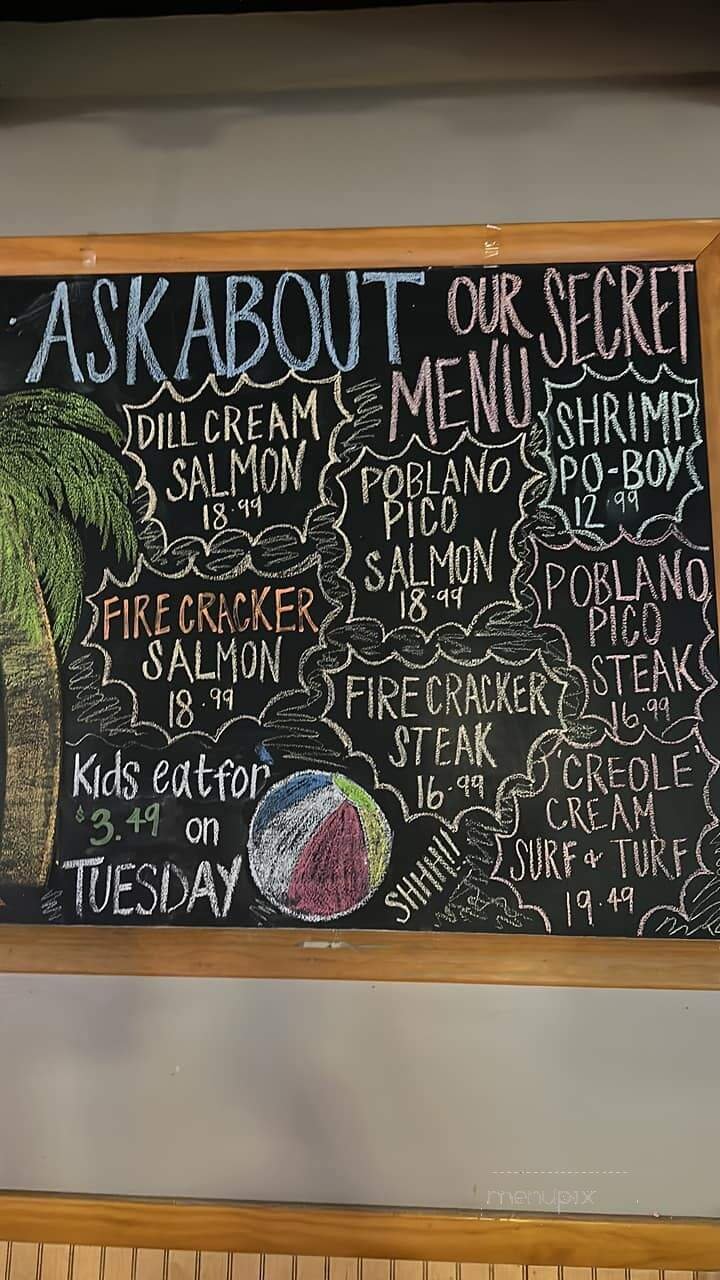 ASK ABOUT OUR SECRET
MENU
DILL CREAM
SALMON
18.99
POBLANO
PICO
SALMON
18.99
SHRIMP
PO-BOY
12.99
FIRECRACKER
SALMON
18.99
FIRECRACKER
STEAK
16.99
POBLANO
PICO
STEAK
16.99
Kids eat for
$3.49 on
TUESDAY
SHHHH!!
'CREOLE'
CREAM
SURF & TURF
19.49
menupix